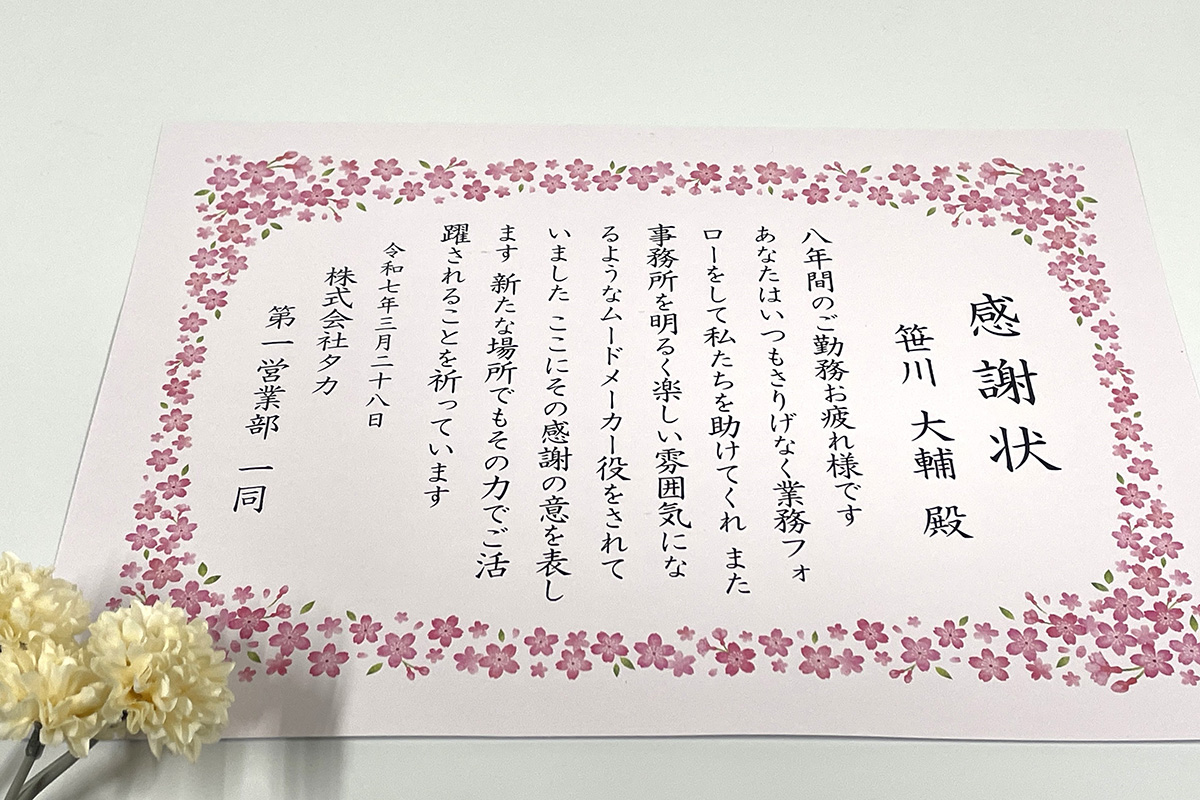 感謝状
笹川 大輔 殿
八年間のご勤務お疲れ様です
あなたはいつもさりげなく業務フォ
ローをして私たちを助けてくれ また
事務所を明るく楽しい雰囲気にな
るようなムードメーカー役をされて
いました ここにその感謝の意を表し
ます 新たな場所でもその力でご活
躍されることを祈っています
令和七年三月二十八日
株式会社タカ
第一営業部 一同